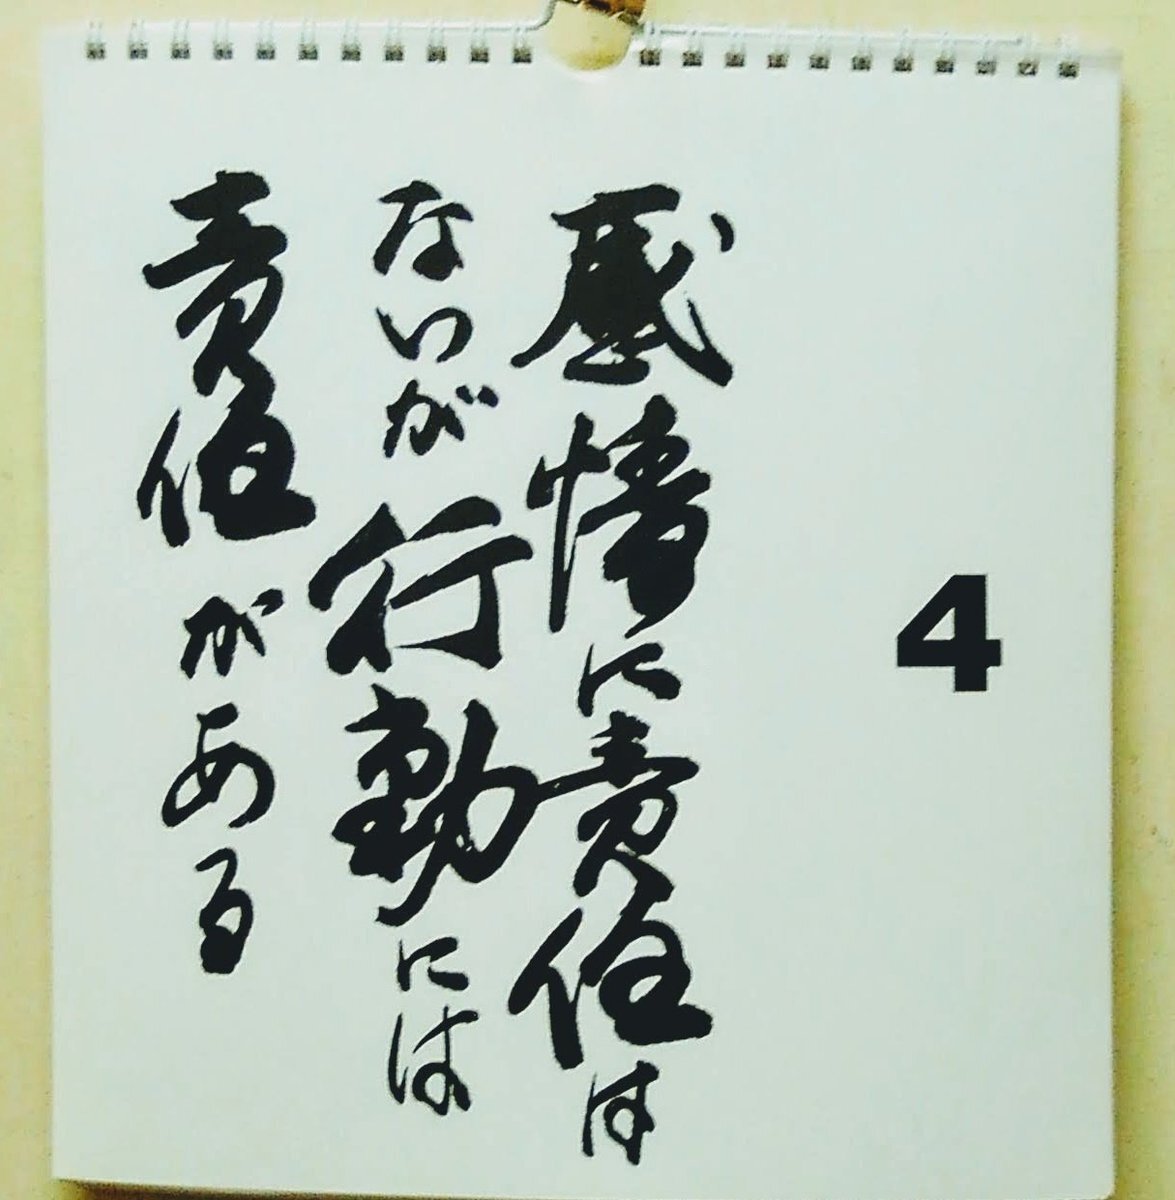 4
感情に責任は
ないが行動には
責任がある